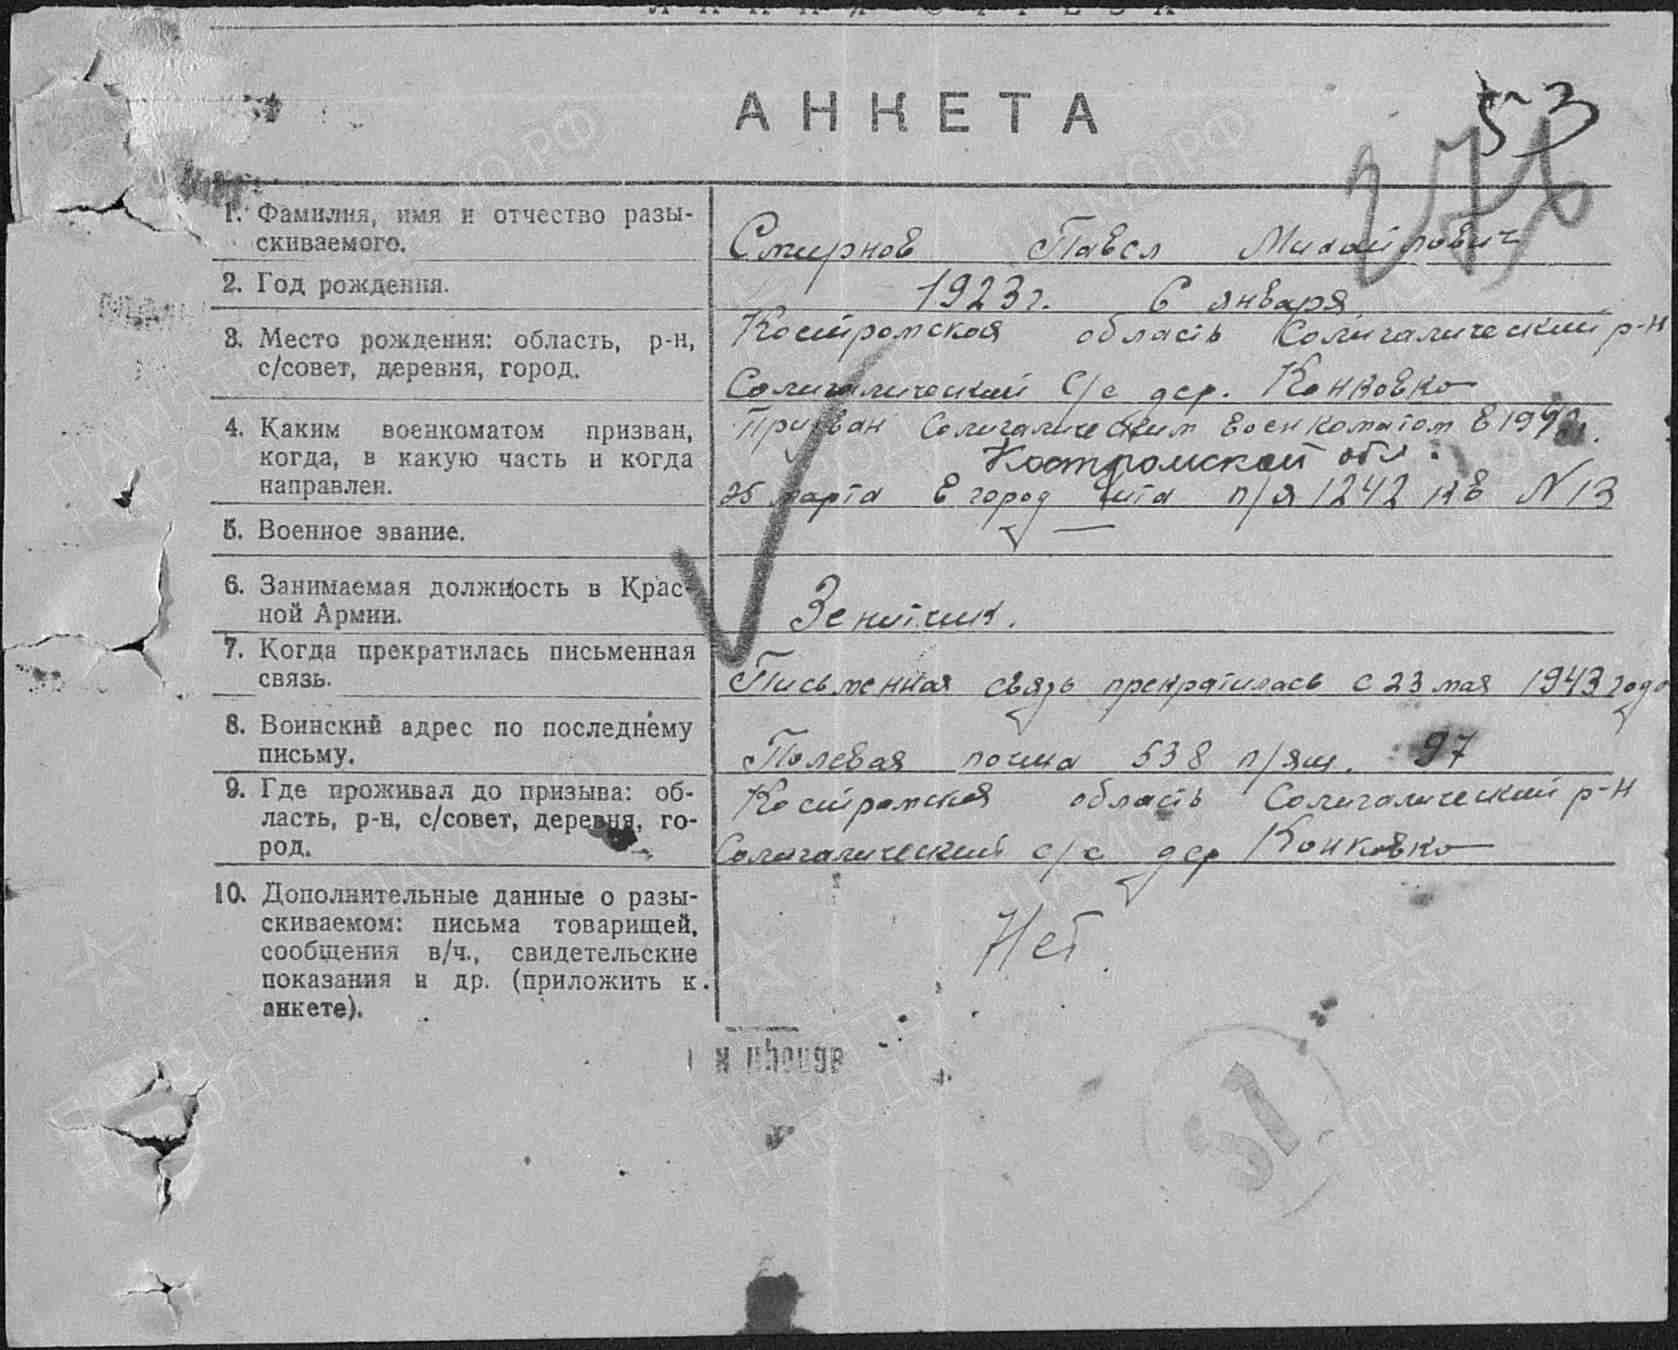 ЛИНИЯ ОТРЕЗА
АНКЕТА
53
1. Фамилия, имя и отчество разы-
скиваемого.
Смирнов Павел Михайлович
2. Год рождения.
1923 г. 6 января
3. Место рождения: область, р-н,
с/совет, деревня, город.
Костромская область Солигалический р-н
Солигалический с/с дер. Конковко
4. Каким военкоматом призван,
когда, в какую часть и когда
направлен.
Призван Солигалическим военкоматом в
Костромской обл.
марта в город Чита п/я 1242 кв N 13
5. Военное звание.
—
6. Занимаемая должность в Крас-
ной Армии.
Зенитчик.
7. Когда прекратилась письменная
связь.
Письменная связь прекратилась с 23 мая 1943 года
8. Воинский адрес по последнему
письму.
Полевая почта 538 п/ящ. 97
9. Где проживал до призыва: об-
ласть, р-н, с/совет, деревня, го-
род.
Костромская область Солигалический р-н
Солигалический с/с дер Конковко
10. Дополнительные данные о разы-
скиваемом: письма товарищей,
сообщения в/ч., свидетельские
показания и др. (приложить к
анкете).
Нет.
31
ПАМЯТЬ
НАРОДА